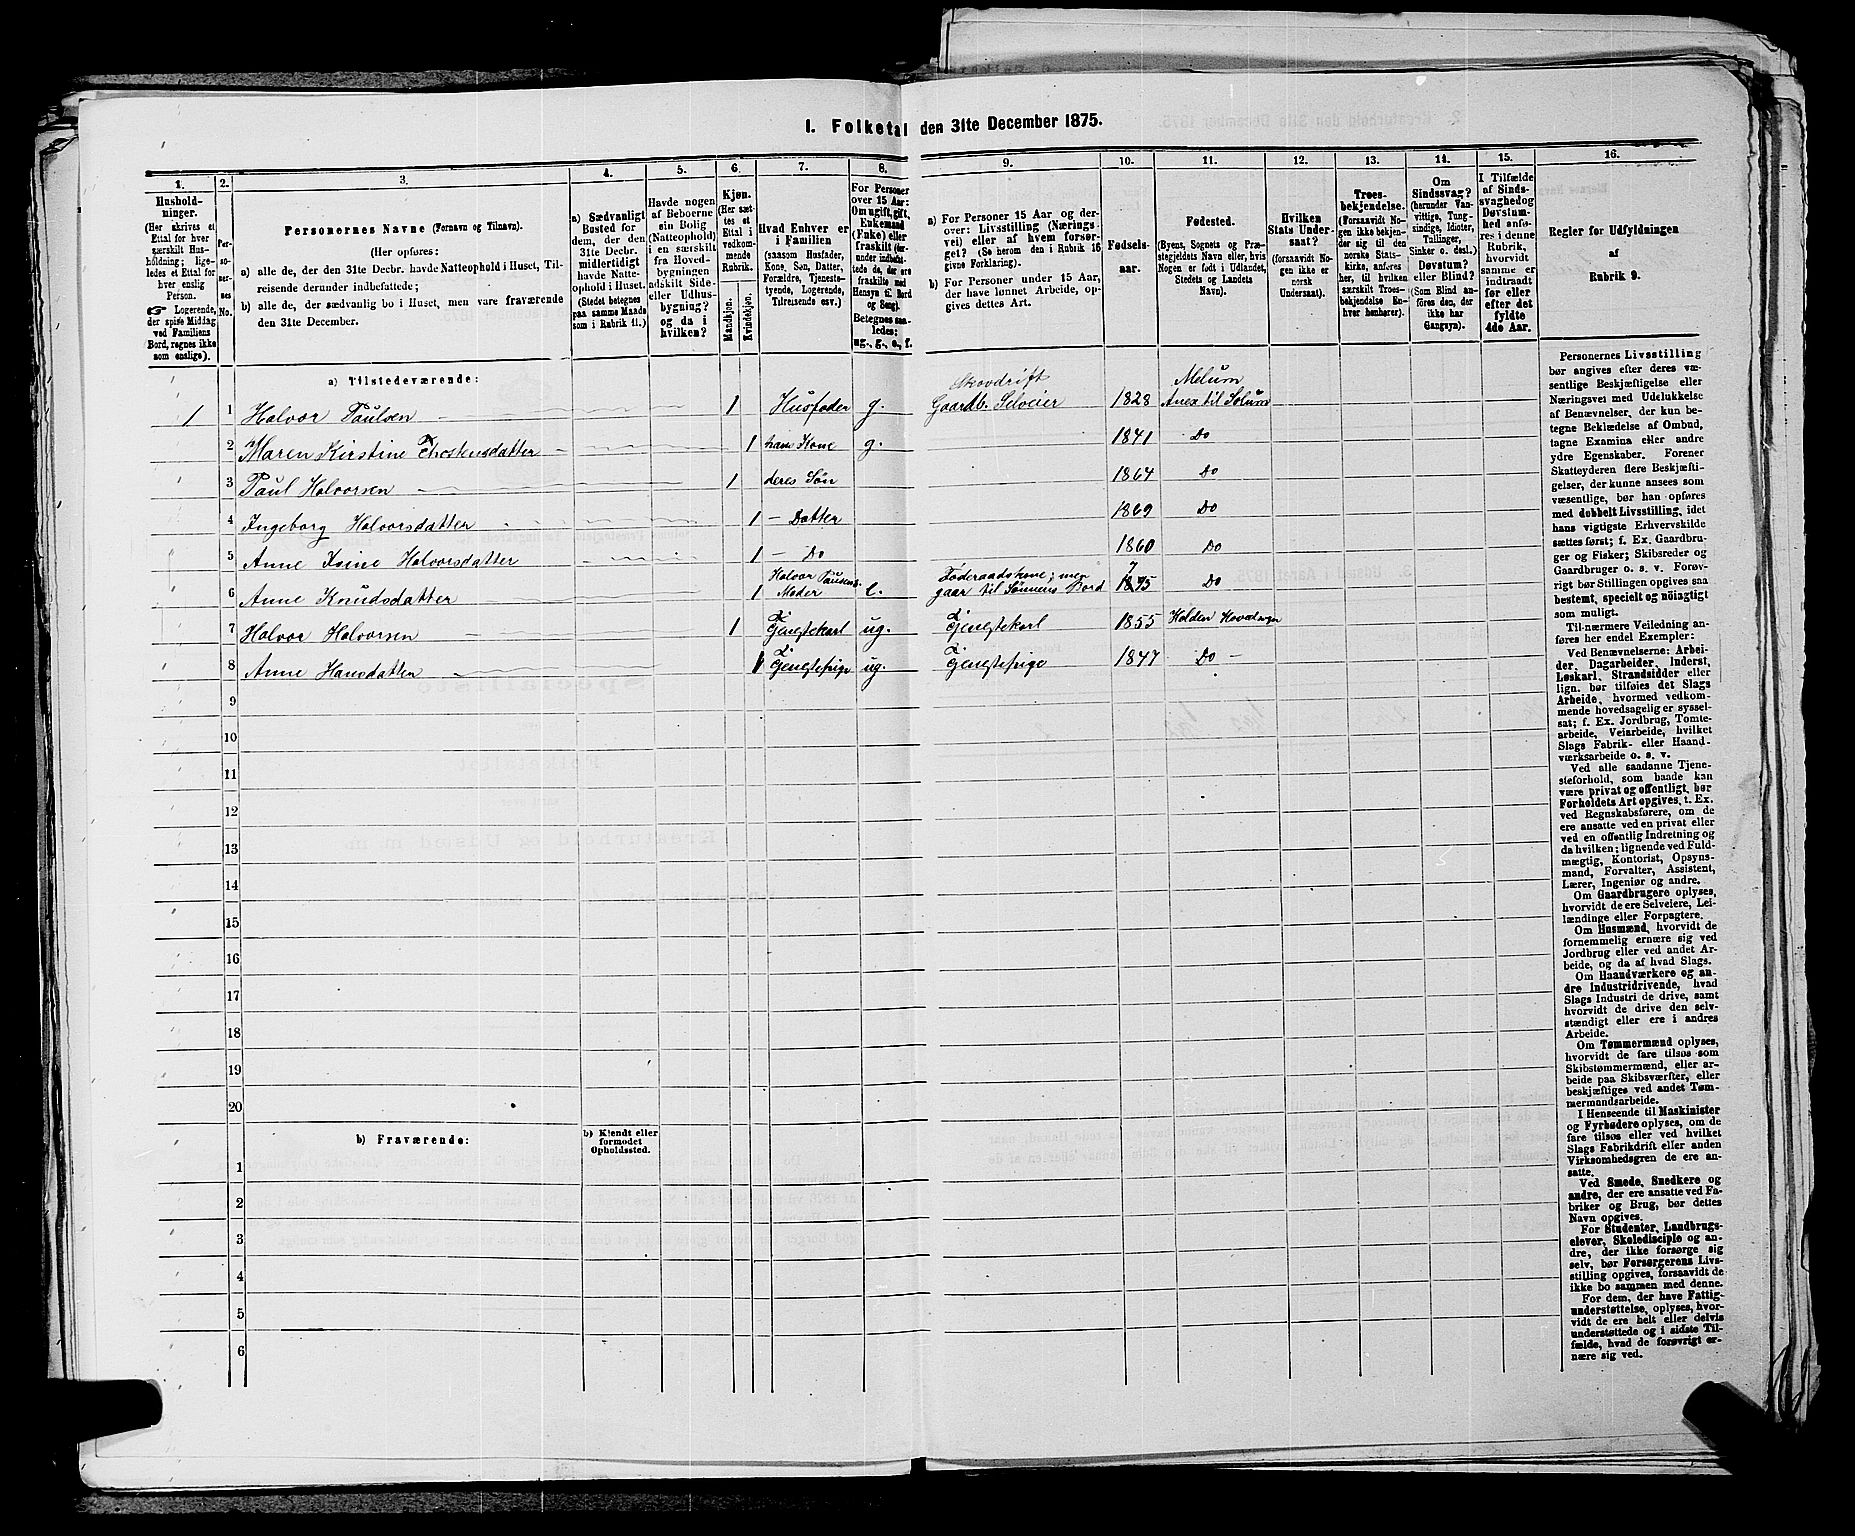 1. Folketal den 31te December 1875.
1.
2.
3.
4.
5.
6.
7.
8.
9.
10.
11.
12.
13.
14.
15.
16.
Husholdninger.
(Her skrives et
Ettal for hver
særskilt Husholdning; ligeledes et Ettal for
hver enslig
Person.
☛ Logerende,
der spise Middag
ved Familiens
Bord, regnes ikke
som enslige).
Personernes No.
Personernes Navne (Fornavn og Tilnavn).
(Her opføres:
a) alle de, der den 31te Decbr. havde Natteophold i Huset, Tilreisende derunder indbefattede;
b) alle de, der sædvanlig bo i Huset, men vare fraværende
den 31te December.
a) Sædvanligt
Bosted for
dem, der den
31te Decbr.
midlertidigt
havde Natteophold i Huset.
(Stedet betegnes
paa samme Maade
som i Rubrik 11.)
Havde nogen
af Beboerne
sin Bolig
(Natteophold)
i en særskilt
fra Hovedbygningen
adskilt Side- eller Udhusbygning?
og da i
hvilken?
Kjøn.
(Her sættes et
Ettal i
vedkommende
Rubrik.
Mandkjøn.
Kvindekjøn.
Hvad Enhver er
i Familien
(saasom Husfader,
Kone, Søn, Datter,
Forældre, Tjenestetyende, Logerende,
Tilreisende osv.)
For Personer
over 15 Aar:
Om ugift, gift,
Enkemand
(Enke) eller
fraskilt
Betegnes saaledes:
ug., g., e., f.
a) For Personer 15 Aar og derover: Livsstilling (Næringsvei) eller af hvem forsørget? (Se herom den i Rubrik 16
givne Forklaring).
b) For Personer under 15 Aar,
der have lønnet Arbeide, opgives dettes Art.
Fødselsaar.
Fødested.
(Byens, Sognets og Præstegjeldets Navn eller, hvis
Nogen er født i Udlandet,
Stedets og Landets
Navn).
Hvilken
Stats Undersaat?
(forsaavidt Nogen ikke er
norsk
Undersaat).
Troesbekjendelse.
(Forsaavidt Nogen ikke bekjender sig til den
norske Statskirke, anføres
her, til hvilken
særskilt Troesbekjendelse Enhver henhører).
Om
Sindssvag?
(herunder Vanvittige, Tungsindige, Idioter,
Tullinger,
Sinker o. desl.)
Døvstum?
eller Blind?
(Som Blind anføres den, der
ikke har
Gangsyn).
I Tilfælde
af Sindssvaghed og
Døvstumhed anføres i denne
Rubrik,
hvorvidt
samme er
indtraadt
før eller
efter det
fyldte
4de Aar.
Regler for Udfyldningen
af
Rubrik 9.
a) Tilstedeværende:
1 1 Halvor Paulsen 1 Husfader g. Skovdrift Gaardb. Selveier 1828 Melum Anex til Solum
2 Maren Kirstine Thostensdatter 1 hans Kone g. 1841 Do
3 Paul Halvorsen 1 deres Søn 1864 Do
4 Ingeborg Halvorsdatter 1 – Datter 1869 Do
5 Anne Halvorsdatter 1 – Do 1860 Do
6 Anne Knudsdatter 1 Halvor Paulsens Moder e. Føderaadskone; men gaar til Sønnens Bord Do
7 Halvor Halvorsen 1 Tjenestekarl ug. Tjenestekarl 1855 Holden Hovedsogn
8 Anne Hansdatter 1 Tjenestepige ug. Tjenestepige 1847 Do –
9
10
11
12
13
14
15
16
17
18
19
20
b) Fraværende:
b) Kjendt eller
formodet
Opholdssted.
1
2
3
4
5
6
Personernes Livsstilling
bør angives efter deres væsentlige Beskjæftigelse eller
Næringsvei med Udelukkelse
af Benævnelser, der kun betegne Beklædelse af Ombud,
tagne Examina eller andre
ydre Egenskaber. Forener
Skatteyderen flere Beskjæftigelser, der kunne ansees som
væsentlige, bør han opføres
med dobbelt Livsstilling, idet
hans vigtigste Erhvervskilde
sættes først; f. Ex. Gaardbruger og Fisker; Skibsreder og
Gaardbruger o. s. v. Forøvrigt bør Stillingen opgives saa
bestemt, specielt og nøiagtigt
som muligt.
Til nærmere Veiledning anføres her endel Exempler:
Ved Benævnelserne: Arbeider, Dagarbeider, Inderst,
Løskarl, Strandsidder eller
lign. bør tilføies det Slags
Arbeide, hvormed vedkommende hovedsagelig er sysselsat; f. Ex. Jordbrug, Tomtearbeide, Veiarbeide, hvilket
Slags Fabrik- eller Haandværksarbeide o. s. v.
Ved alle saadanne Tjenesteforhold, som baade kan
være privat og offentligt, bør
Forholdets Art opgives, t. Ex.
ved Regnskabsførere, om de
ere ansatte ved en privat eller
ved en offentlig Indretning og
da hvilken; lignende ved Fuldmægtig, Kontorist, Opsynsmand, Forvalter, Assistent,
Lærer, Ingeniør og andre.
Om Gaardbrugere oplyses,
hvorvidt de ere Selveiere, Leilændinge eller Forpagtere.
Om Husmænd, hvorvidt de
fornemmelig ernære sig ved
Jordbrug eller ved andet Arbeide, og da af hvad Slags.
Om Haandværkere og andre Industridrivende, hvad
Slags Industri de drive, samt
hvorvidt de drive den selvstændigt eller ere i andres
Arbeide.
Om Tømmermænd oplyses,
hvorvidt de fare tilsøs som
Skibstømmermænd, eller arbeide paa Skibsværfter, eller
beskjæftiges ved andet Tømmermandsarbeide.
I Henseende til Maskinister
og Fyrbødere oplyses, om de
fare tilsøs eller ved hvilket
Slags Fabrikdrift eller anden
Virksomhedsgren de ere ansatte.
Ved Smede, Snedkere og
andre, der ere ansatte ved Fabriker og Brug, bør dettes
Navn opgives.
For Studenter, Landbrugselever, Skoledisciple og andre, der ikke forsørge sig
selv, bør Forsørgerens Livsstilling opgives, forsaavidt de
ikke bo sammen med denne.
For dem, der have Fattigunderstøttelse, oplyses, hvorvidt de ere helt eller delvis
understøttede og i sidste Tilfælde, hvad de forøvrigt ernære sig ved.